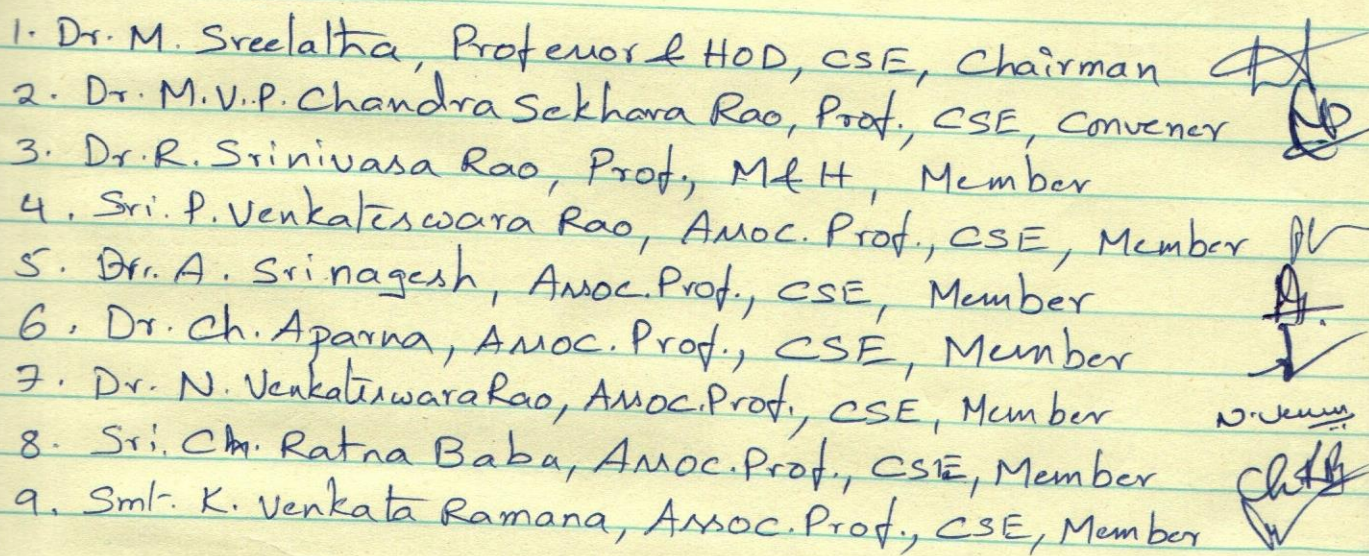 1. Dr. M. Sreelatha, Professor & HOD, CSE, Chairman
2. Dr. M.V.P. Chandra Sekhara Rao, Prof., CSE, Convener
3. Dr. R. Srinivasa Rao, Prof., M&H, Member
4. Sri. P. Venkateswara Rao, Assoc. Prof., CSE, Member
5. Dr. A. Srinagesh, Assoc. Prof., CSE, Member
6. Dr. Ch. Aparna, Assoc. Prof., CSE, Member
7. Dr. N. Venkateswara Rao, Assoc. Prof., CSE, Member
8. Sri. Ch. Ratna Baba, Assoc. Prof., CSE, Member
9. Smt. K. Venkata Ramana, Assoc. Prof., CSE, Member